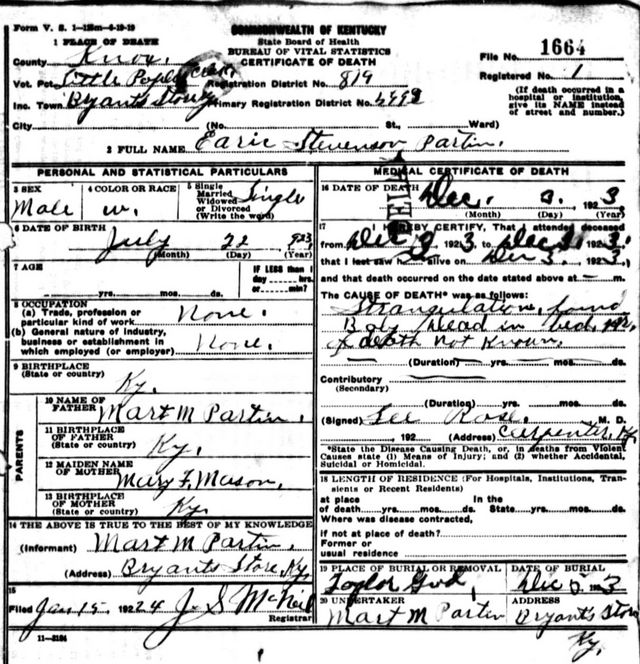 Form V. S. 1—125m—4-19-19
COMMONWEALTH OF KENTUCKY
State Board of Health
BUREAU OF VITAL STATISTICS
CERTIFICATE OF DEATH
1 PLACE OF DEATH
County Knox
File No. 1664
Vot. Pct. Little Poplar Creek Registration District No. 819
Registered No. 1
Inc. Town Bryants Store Primary Registration District No.
(If death occurred in a hospital or institution, give its NAME instead of street and number.)
City (No. St., Ward)
2 FULL NAME Earic Stevenson Partin.
PERSONAL AND STATISTICAL PARTICULARS
3 SEX
Male
4 COLOR OR RACE
w.
5 Single
Married
Widowed
or Divorced
(Write the word)
Single
6 DATE OF BIRTH
July 22 923
(Month) (Day) (Year)
7 AGE
yrs. mos. ds.
IF LESS than 1
day hrs.
or min.?
8 OCCUPATION
(a) Trade, profession or
particular kind of work None.
(b) General nature of industry,
business or establishment in
which employed (or employer) None.
9 BIRTHPLACE
(State or country)
Ky.
PARENTS
10 NAME OF
FATHER Mart M Partin.
11 BIRTHPLACE
OF FATHER
(State or country) Ky.
12 MAIDEN NAME
OF MOTHER Mary F. Mason.
13 BIRTHPLACE
OF MOTHER
(State or country) Ky.
14 THE ABOVE IS TRUE TO THE BEST OF MY KNOWLEDGE
(Informant) Mart M Partin.
(Address) Bryants Store Ky.
15
Filed Jan 15 1924 J. S McNeil
Registrar
11—3184
MEDICAL CERTIFICATE OF DEATH
16 DATE OF DEATH Dec. 3, 1923
(Month) (Day) (Year)
17 I HEREBY CERTIFY, That I attended deceased
from Dec 3 1923 to Dec 3, 1923,
that I last saw h alive on Dec 3, 1923,
and that death occurred on the date stated above at m.
The CAUSE OF DEATH* was as follows:
Strangulation, found
Boy dead in bed,
of death not known.
(Duration) yrs. mos. ds.
Contributory
(Secondary)
(Duration) yrs. mos. ds.
(Signed) Lee Rose. M. D.
, 192 (Address) Carpenter, Ky
*State the Disease Causing Death, or, in deaths from Violent
Causes state (1) Means of Injury; and (2) whether Accidental,
Suicidal or Homicidal.
18 LENGTH OF RESIDENCE (For Hospitals, Institutions, Tran-
sients or Recent Residents)
at place In the
of death yrs. mos. ds. State yrs. mos. ds.
Where was disease contracted,
if not at place of death?
Former or
usual residence
19 PLACE OF BURIAL OR REMOVAL
DATE OF BURIAL
Taylor Gvd, Dec 5 1923
20 UNDERTAKER
ADDRESS
Mart M Partin Bryants Store
Ky.